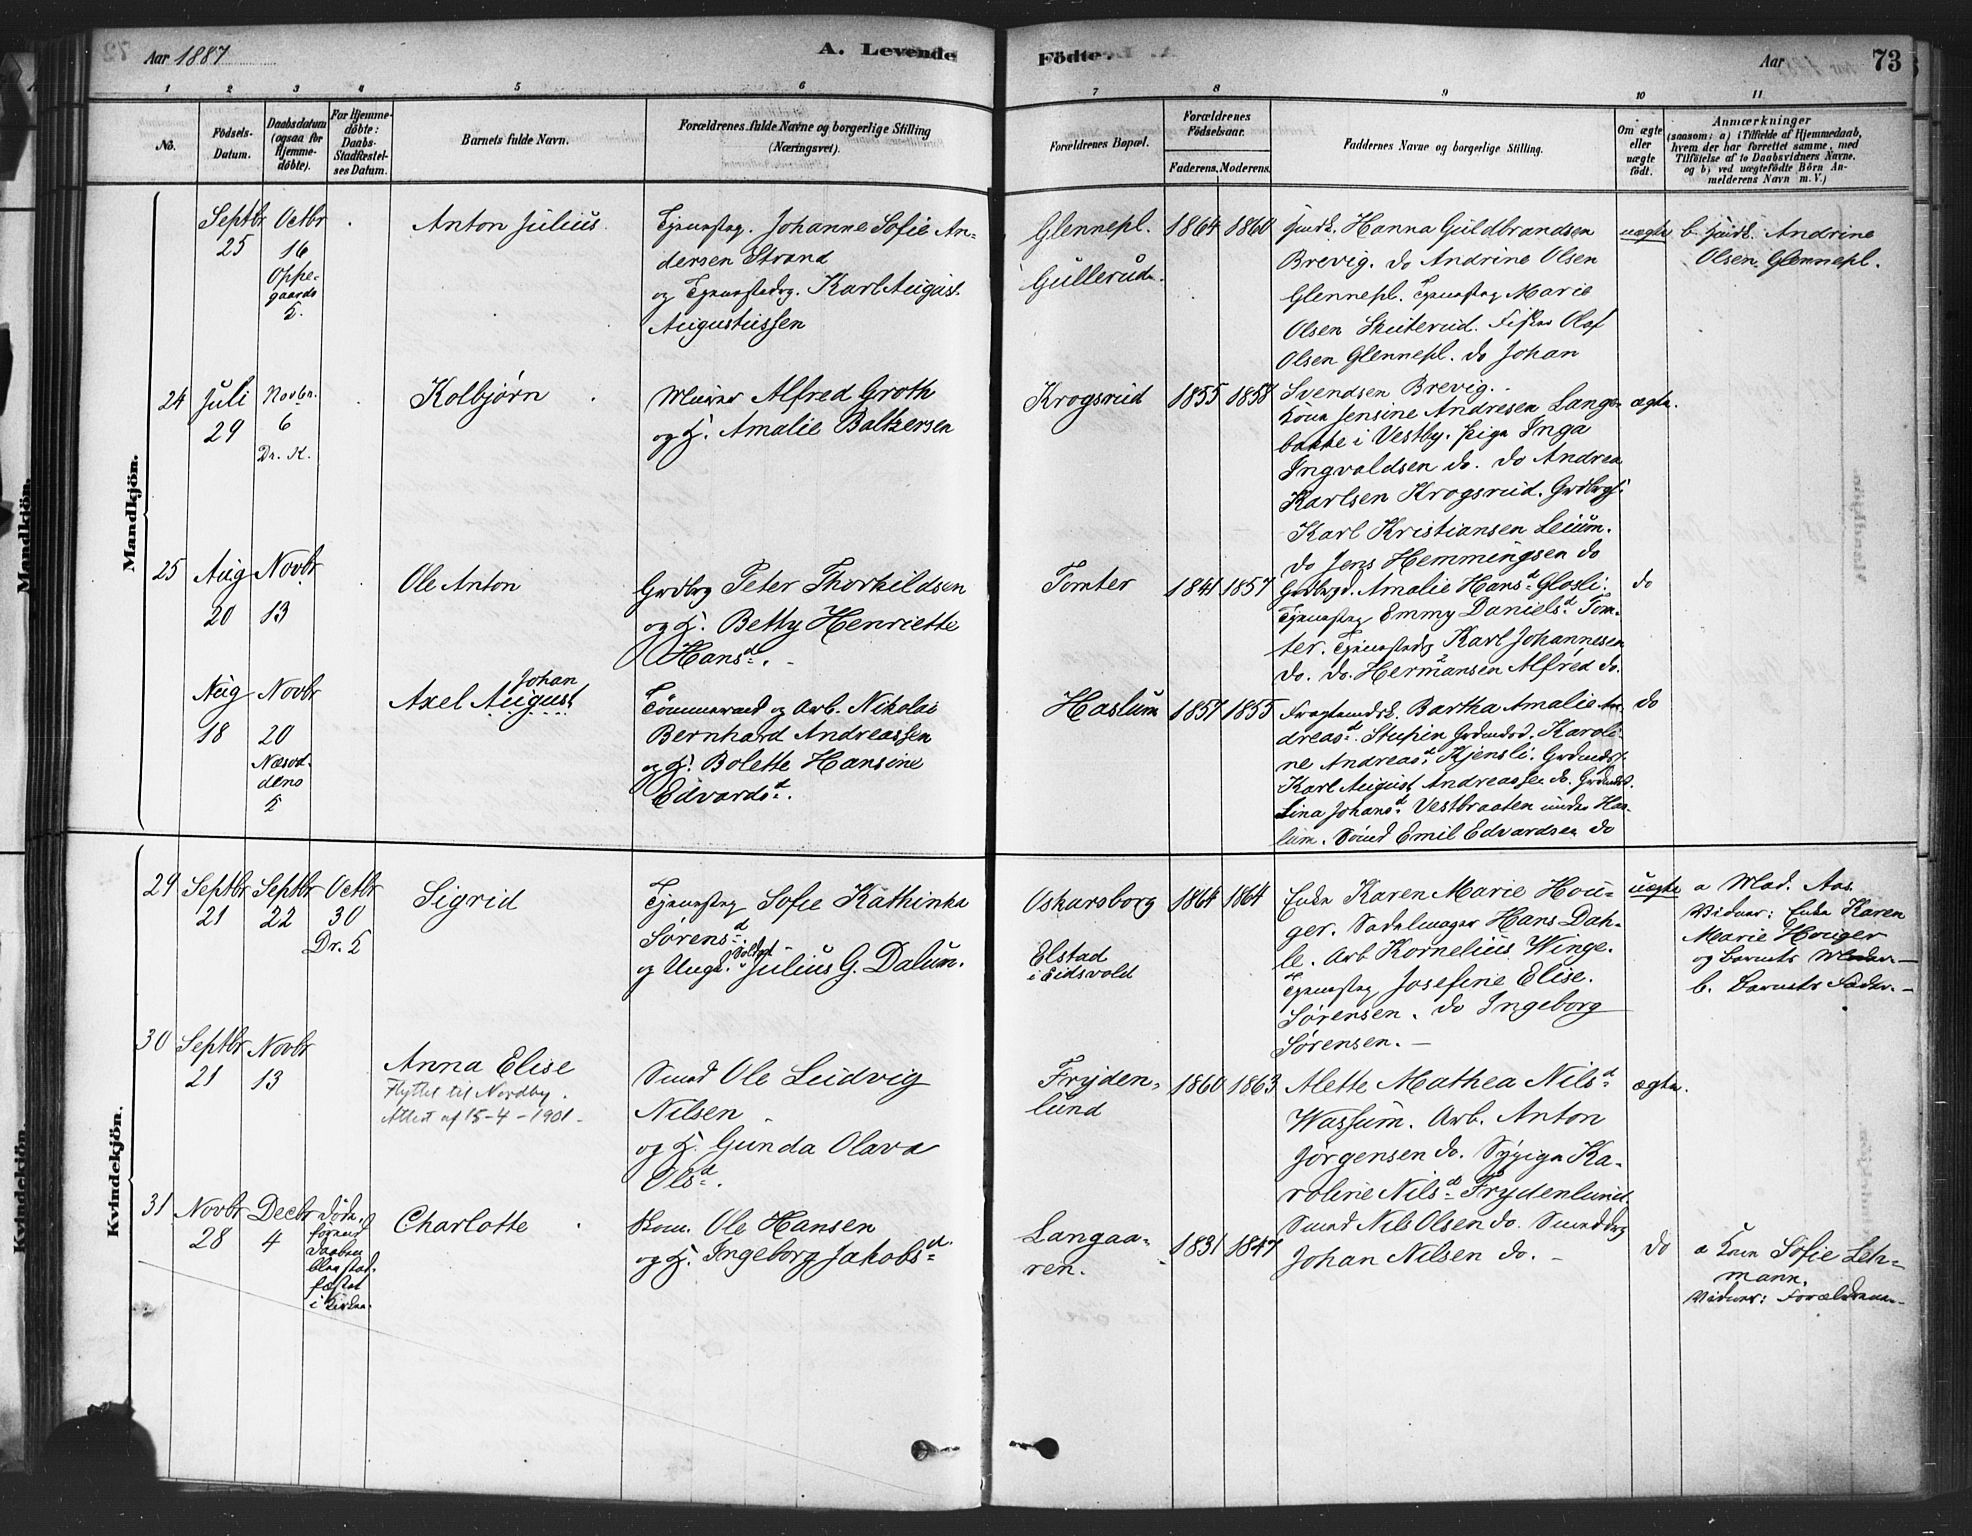 Aar 1887
A. Levende
Födte.
Aar
73
1 2 3 4 5 6 7 8 9 10 11
No.
Födsels-
Datum.
Daabsdatum
(ogsaa for
Hjemme-
döbte).
For Hjemme-
döbte:
Daabs-
Stadfæstel-
ses Datum.
Barnets fulde Navn.
Forældrenes fulde Navne og borgerlige Stilling
(Næringsvei).
Forældrenes Bopæl.
Forældrenes
Födselsaar.
Faderens. Moderens.
Faddernes Navne og borgerlige Stilling.
Om ægte
eller
uægte
födt.
Anmærkninger
(saasom: a) i Tilfælde af Hjemmedaab,
hvem der har forrettet samme, med
Tilföielse af to Daabsvidners Navne.
og b) ved uægtefödte Börn An-
melderens Navn m. V.)
Mandkjön.
Septbr
25
Octbr
16
Oppe-
gaards
Anton Julius
Johanne Sofie An-
dersen Strand
og Karl August
Augustussen
Glennepl.
Gullerud.
1864 1860
Hanna Guldbrandsen
Brevig. do Andrine Olsen
Glennepl. Marie
Olsen Skuterud. Fisker Olaf
Olsen Glennepl. do Johan
Svendsen Brevig.
uægte
b. Andrine
Olsen Glennepl.
24
Juli
29
Novbr.
6
Dr. K.
Kolbjørn
Murer Alfred Groth
og H. Amalie Baltzersen
Krogsrud
1855 1858
Kone Jensine Andresen Lange-
bakke i Vestby. Pige Inga
Ingvaldsen do. do Andrea
Karlsen Krogsrud.
Karl Kristiansen Leium.
do Jens Hemmingsen do
ægte.
25
Aug
20
Novbr
13
Ole Anton
Grdbrg Peter Thorkildsen
og H. Betty Henriette
Hansd.
Tomter
1841 1857
Amalie Hansd Glosli.
Emmy Danielsd Tom-
ter. Karl Johannesen
do. do. Hermansen Alfred do.
do
Aug
18
Novbr
20
Næsod-
dens
Axel August
Johan
Tømmermand og Arb. Nikolai
Bernhard Andreassen
og H. Bolette Hansine
Edvardsd.
Haslum
1857 1855
Bartha Amalie An-
dreasd Stupin Karoli-
ne Andreasd Kjensli.
Karl August Andreassen do.
Lina Johansd Vestbraaten under Has-
lum. Emil Edvardsen do
do
Kvindekjön.
29
Septbr
21
Septbr
22
Octbr
30
Dr.
Sigrid
Sofie Kathinka
Sørensd
og Ungk. Soldat Julius G. Dalum.
Oskarsborg
Elstad
i Eidsvold
1864 1864
Enke Karen Marie Hou-
ger. Sadelmager Hans Dah-
le. Arb Kornelius Winge.
Josefine Elise.
Sørensen. do Ingeborg
Sørensen.
uægte
a Mad. Aas.
Vidner: Enke Karen
Marie Houger
og Barnets Moder
b. Barnets Fader.
30
Septbr
21
Novbr
13
Anna Elise
Flyttet til Nordby.
Attest af 15-4-1901.
Smed Ole Ludvig
Nilsen
og H. Gunda Olava
Olsd.
Fryden-
lund
1860 1863
Alette Mathea Nilsd
Wassum. Arb. Anton
Jørgensen do. Sypige Ka-
roline Nilsd Frydenlund.
Smed Nils Olsen do. Smeddrg
Johan Nilsen do.
ægte.
31
Novbr
28
Decbr
4
Døde
førend
Daaben
blev stad-
fæstet
i Kirken.
Charlotte
Skom. Ole Hansen
og H. Ingeborg Jakobsd
Langaa-
ren.
1831 1847
do
a Kone Sofie Leh-
mann.
Vidner: Forældrene